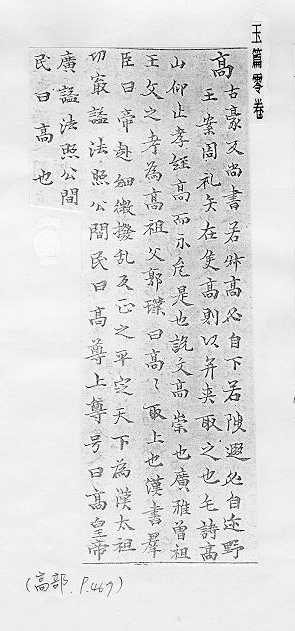 玉篇零卷
高
古豪反尚書若升高必自下若陟遐必自迩野
王案周礼矢在侯高則以并夾取之也毛詩高
山仰止孝經高而不危是也說文高崇也廣雅曾祖
王父之孝為高祖父郭璞曰高〻冣上也漢書羣
臣曰帝起細微撥乱反正之平定天下為漢太祖
功冣謚法照公間民曰高尊上尊号曰高皇帝
廣謚法照公間
民曰高也
(高部.P.469)